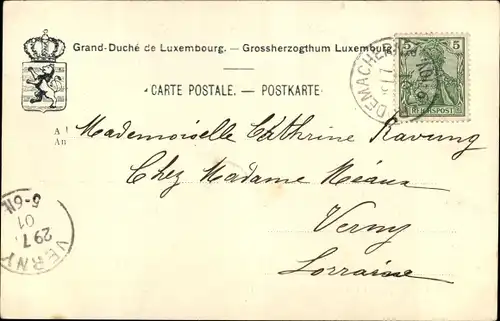 Grand-Duché de Luxembourg. — Grossherzogthum Luxemburg.
CARTE POSTALE. — POSTKARTE
5 5
REICHSPOST
DEMACHERN
Mademoiselle Cathrine Ravung
Chez Madame Méaux
Verny
Lorraine
VERNY
29 7.
01
5-6N